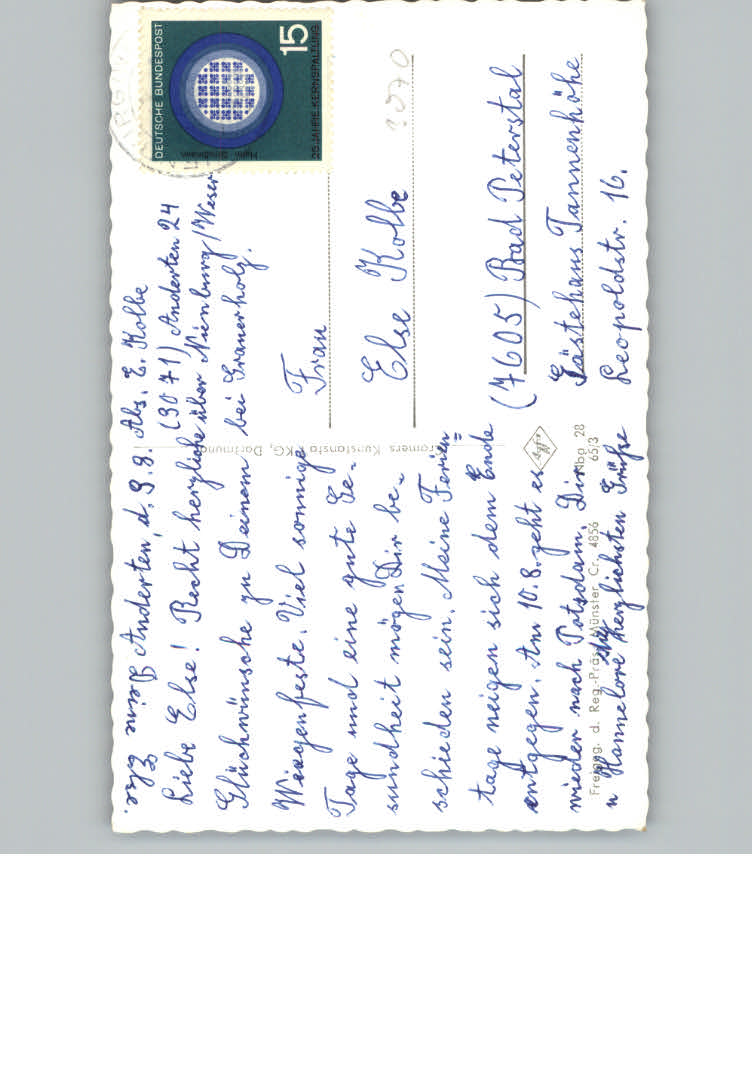 Anderten, d. 9.8.
Liebe Else! Recht herzliche
Glückwünsche zu Deinem
Wiegenfeste. Viel sonnige
Tage und eine gute Ge-
sundheit mögen Dir be-
schieden sein. Meine Ferien=
tage neigen sich dem Ende
entgegen. Am 10.8. geht es
wieder nach Potsdam. Dir
u Hannelore herzlichsten Grüße
Deine
Abs. E. Kolbe
(3071) Anderten 24
über Nienburg/Weser
bei
DEUTSCHE BUNDESPOST
15
25 JAHRE KERNSPALTUNG
Hahn - Straßmann
2070
Frau
Else Kolbe
(7605) Bad Peterstal
Gästehaus Tannenhöhe
Leopoldstr. 16.
Cramers Kunstanstalt KG, Dortmund
Agfa
Nbg 28
65/3
Freigeg. d. Reg.-Präs. Münster, Cr. 4856